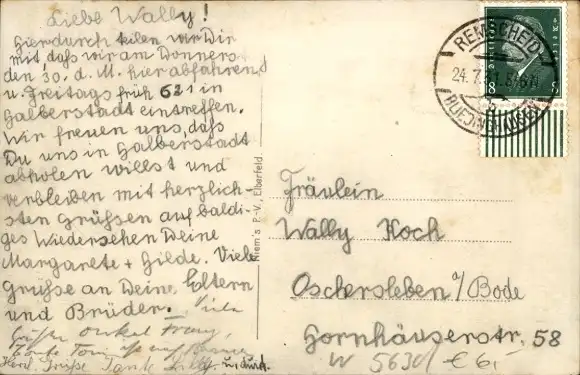 Liebe Wally!
Hierdurch teilen wir Dir
mit, daß wir am Donners-
den 30. d. M. hier abfahren
u. Freitags früh 6²¹ in
Halberstadt eintreffen.
Wir freuen uns, daß
Du uns in Halberstadt
abholen willst und
verbleiben mit herzlich-
sten Grüßen auf baldi-
ges Wiedersehen Deine
Margarete + Hilde. Viele
Grüße an Deine Eltern
und Brüder. Viele
Grüße Onkel Franz,
Tante Toni
Herzl. Grüße Tante
Niem's P.-V., Elberfeld
REMSCHEID
24.7.31.
b
BUEDINGHAUSEN
8 8
Fräulein
Wally Koch
Oschersleben a/Bode
Hornhäuserstr. 58
W 5630 € 6,-